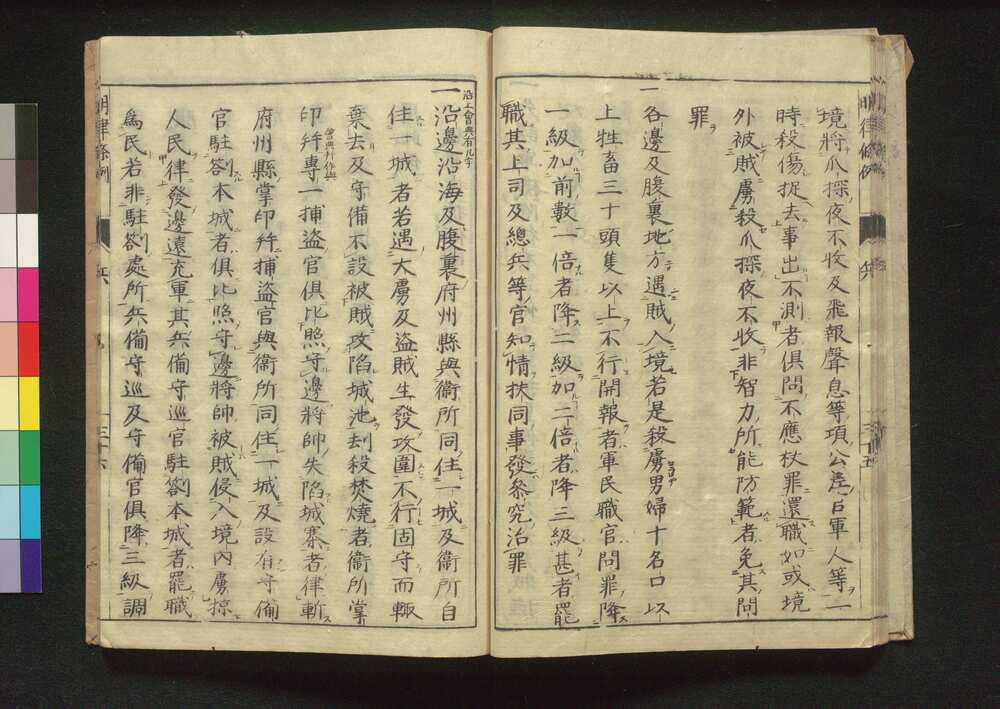 明律條例 兵 三十五
境將爪探夜不收及飛報聲息等項公差官軍人等一
時殺傷捉去事出不測者俱問不應杖罪還職如或境
外被賊虜殺爪探夜不收非智力所能防範者免其問
罪
一各邊及腹裏地方遇賊入境若是殺虜男婦十名口以
上牲畜三十頭隻以上不行開報者軍民職官問罪降
一級加前數一倍者降二級加二倍者降三級甚者罷
職其上司及總兵等官知情扶同事發參究治罪
一沿邊沿海及腹裏府州縣與衞所同住一城及衞所自
沿上會典有凡字
住一城者若遇大虜及盜賊生發攻圍不行固守而輙
棄去及守備不設被賊攻陷城池刦殺焚燒者衞所掌
印幷專一捕盜官俱比照守邊將帥失陷城寨者律斬
會典幷作與
府州縣掌印幷捕盜官與衞所同住一城及設有守備
官駐劄本城者俱比照守邊將帥被賊侵入境內虜掠
人民律發邊遠充軍其兵備守巡官駐劄本城者罷職
爲民若非駐劄處所兵備守巡及守備官俱降三級調
明律條例 兵 三十六